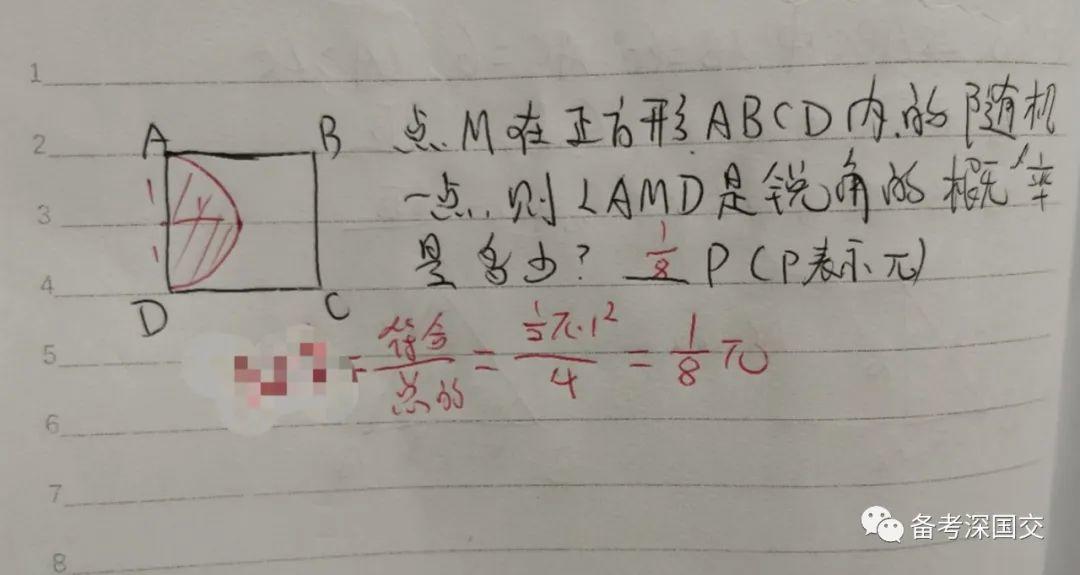 1
2 A B 点M在正方形ABCD内的随机
3 1 1 一点,则∠AMD是锐角的概率
是多少? 1/8 P(P表示π)
4 D C
5 符合/总的 = ½π·1²/4 = 1/8 π
6
7
8
备考深国交